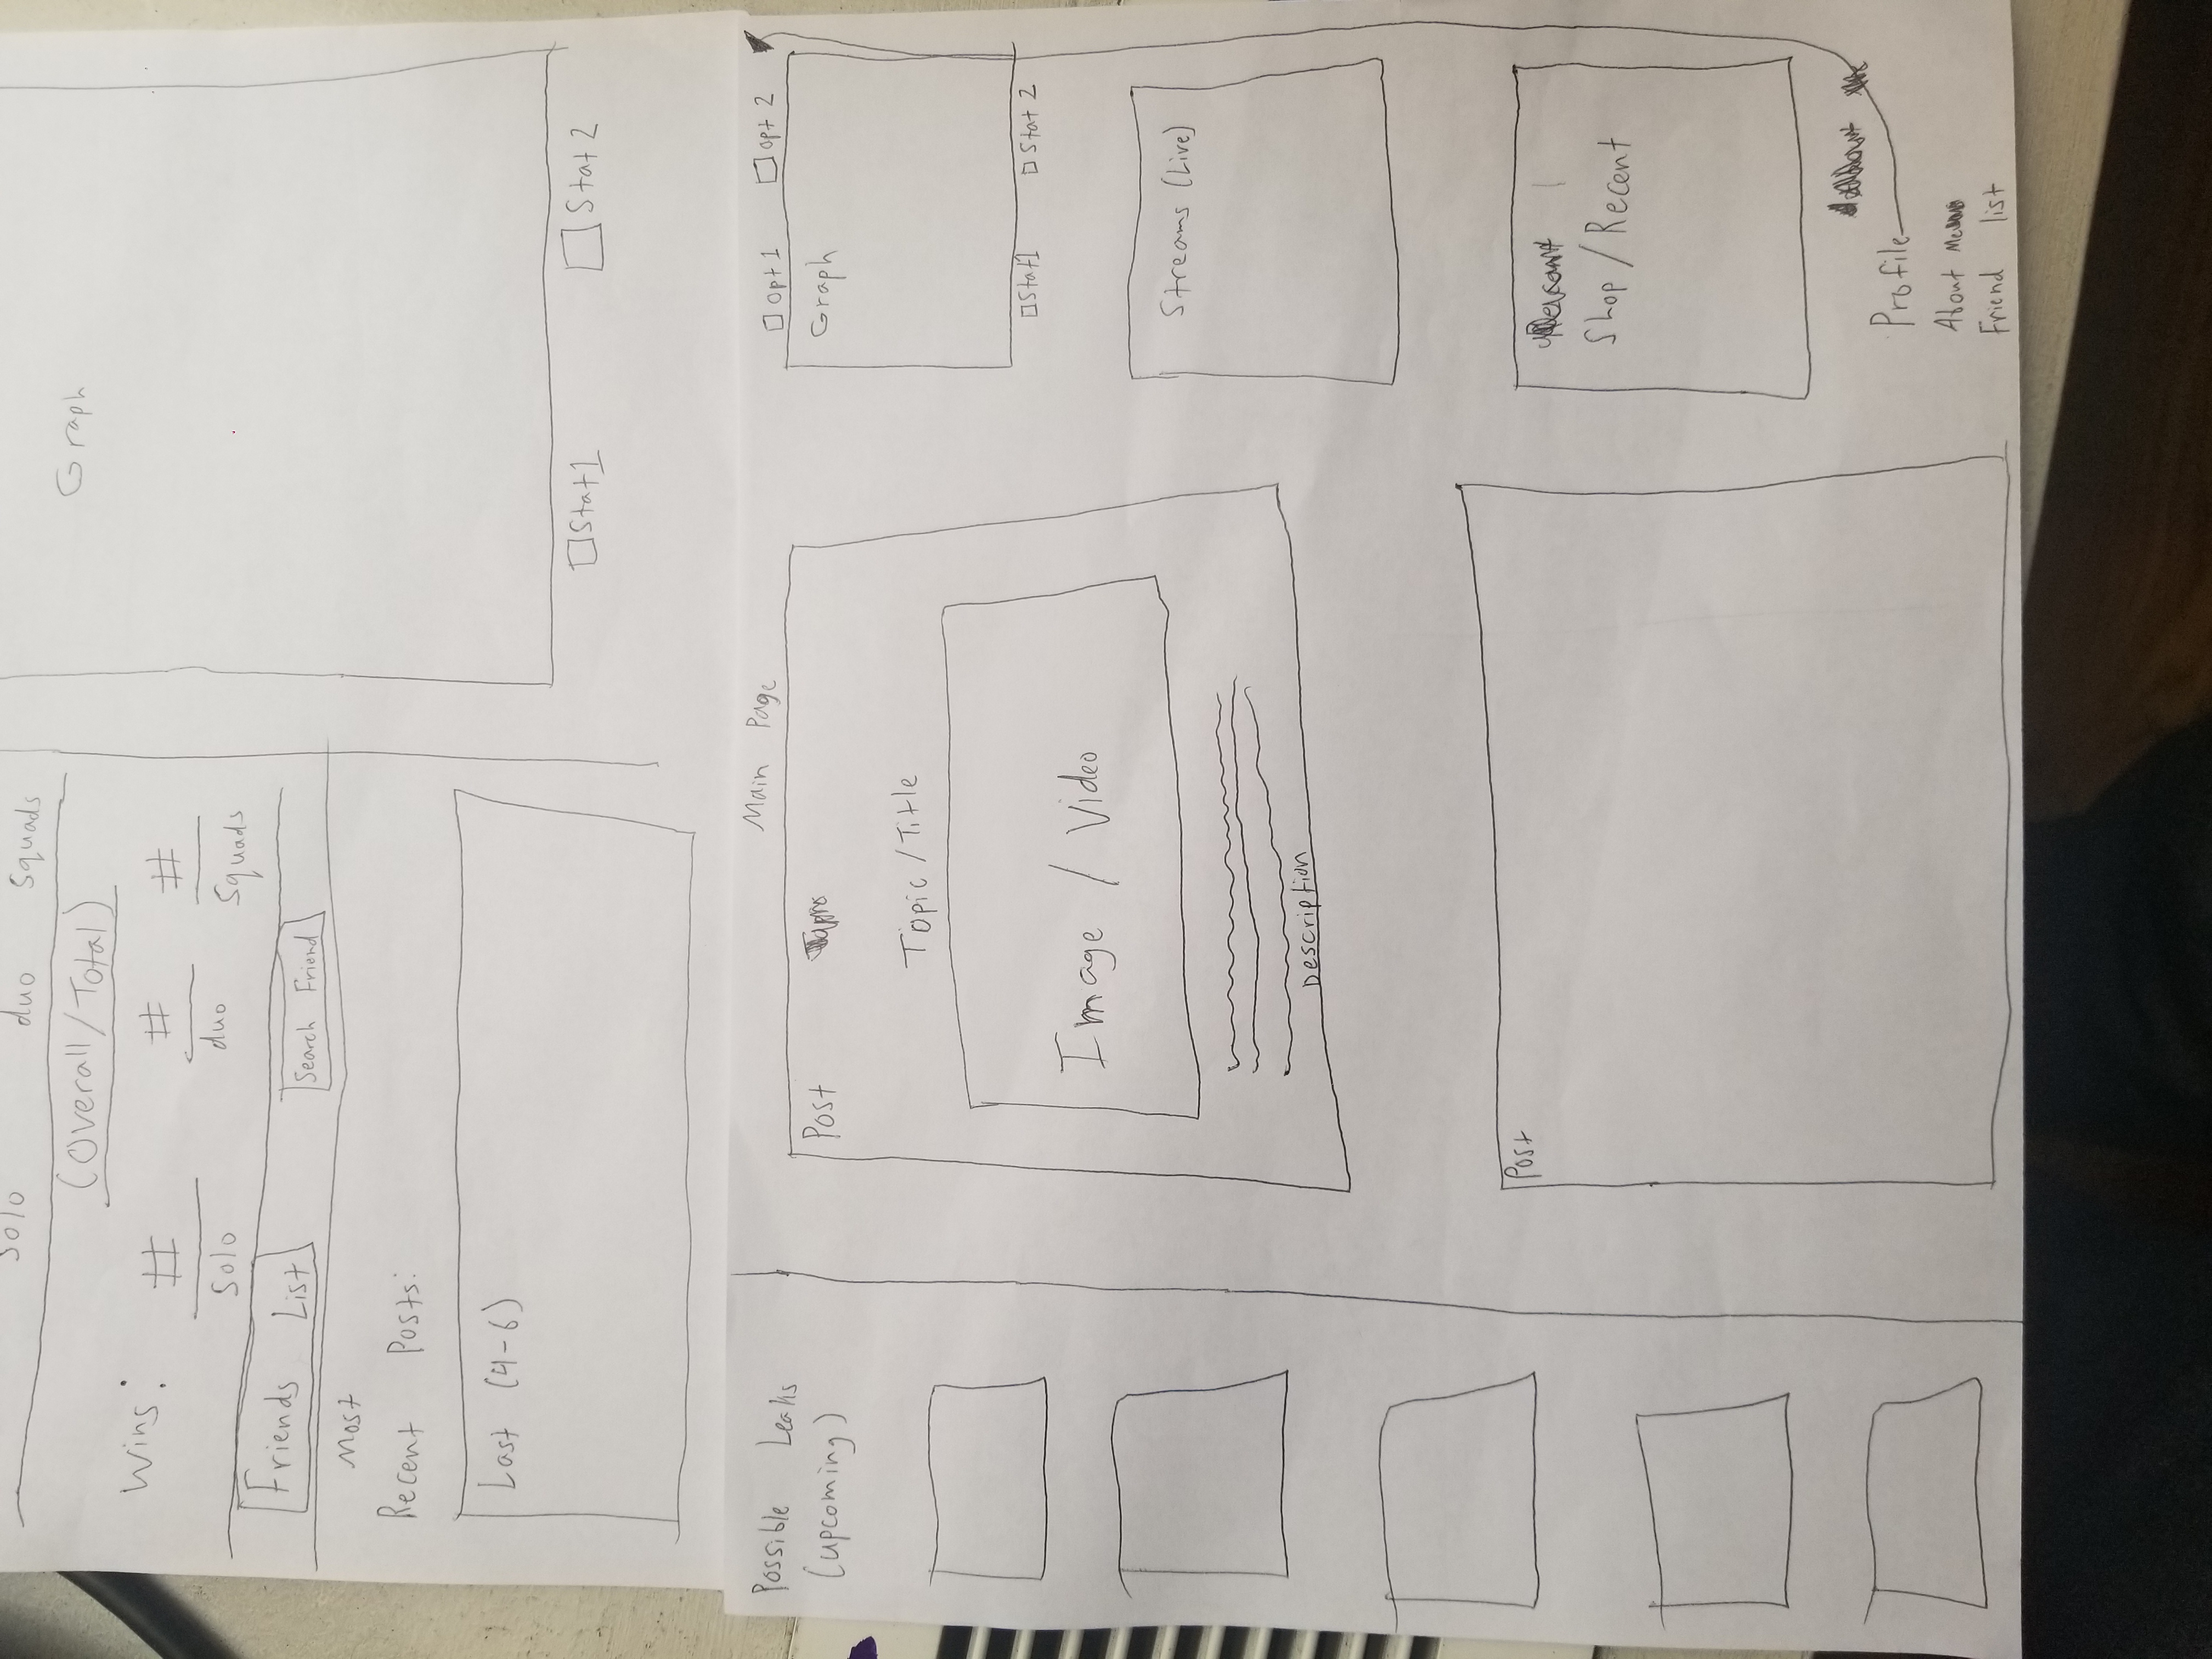 Solo duo Squads
(Overall/Total)
Wins: # # #
Solo duo Squads
Friends List
Search Friend
Most
Recent Posts:
Last (4-6)
Graph
Stat1 Stat 2
Possible Leaks
(upcoming)
Main Page
Post
Topic/Title
Image / Video
Description
Post
opt 1 opt 2
Graph
Stat1 Stat 2
Streams (Live)
Shop/Recent
Profile
About Me
Friend list